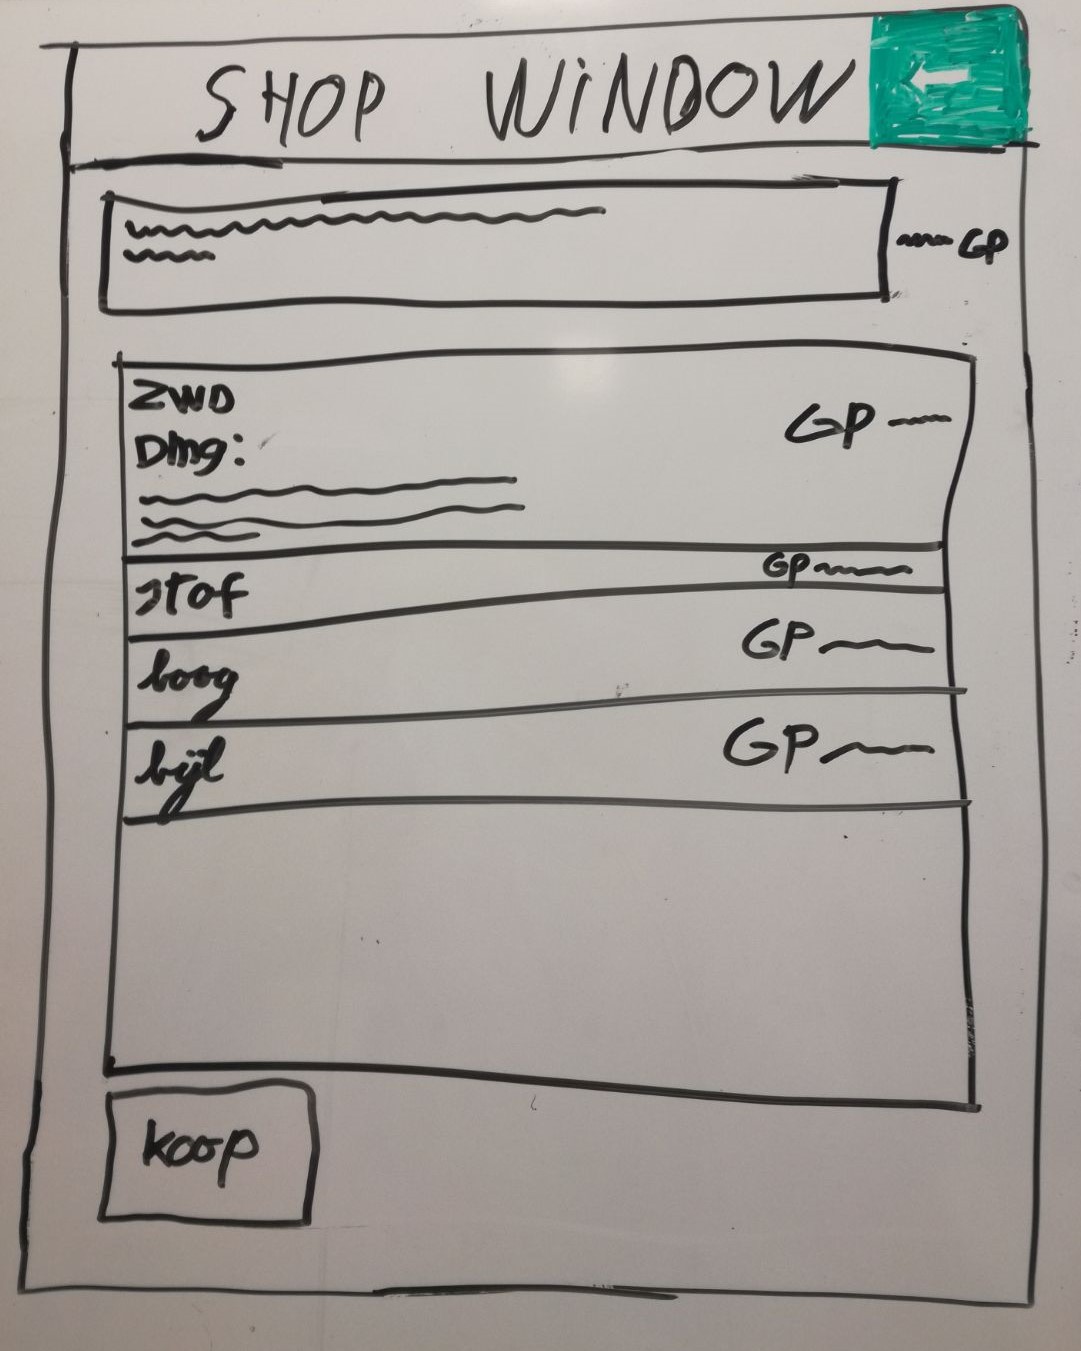 SHOP WiNDOW
GP
ZWD
GP
Dmg:
stof
GP
boog
GP
bijl
GP
koop